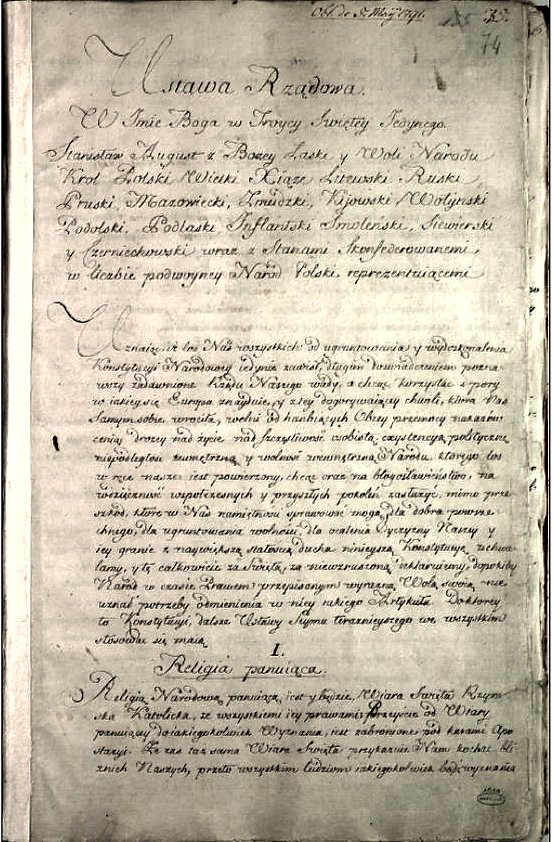 Obl. de 5. Maij 1791.
74
Ustawa Rządowa.
W Imie Boga w Troycy Swiętey Jedynego.
Stanisław August z Bozey Łaski y Woli Narodu
Krol Polski Wielki Xiąze Litewski Ruski
Pruski, Mazowiecki, Zmudzki, Kijowski Wołynski
Podolski, Podlaski Inflantski Smolenski, Siewierski
y Czerniechowski wraz z Stanami Skonfederowanemi
w liczbie podwoyney Naród Polski reprezentuiącemi
Uznaiąc, iż los Nas wszystkich od ugruntowania y wydoskonalenia
Konstytucyi Narodowey iedynie zawisł, długim doswiadczeniem pozna-
wszy zadawnione Rządu Naszego wady, a chcąc korzystac z pory
w iakiey się Europa znayduie, y z tey dogorywaiącey chwili, ktora Nas
samym sobie wrociła, wolni od hanbiących Obcey przemocy nakazów
ceniąc drozey nad zycie, nad szczęsliwosc osobistą, exystencyą polityczną
niepodległosc zewnętrzną y wolnosc wewnętrzną Narodu, ktorego los
w ręce nasze iest powierzony, chcąc oraz na błogosławieństwo, na
wdzięcznosc wspołczesnych y przyszłych pokolen zasłuzyc, mimo prze-
szkod, ktore w Nas namiętnosci sprawowac mogą, dla dobra powsze-
chnego, dla ugruntowania wolnosci, dla ocalenia Oyczyzny Naszey y
iey granic z naywiększą stałoscią ducha ninieyszą Konstytucyę uchwa-
lamy, y tę całkowicie za swiętą, za niewzruszoną deklaruiemy, dopokiby
Narod w czasie Prawem przepisanym wyrazną Wolą swoią nie
uznał potrzeby odmienienia w niey iakiego Artykułu Do ktorey
to Konstytucyi, dalsze Ustawy Seymu teraznieyszego we wszystkim
stosowac się maią
I.
Religia panuiąca.
Religią Narodową panuiącą iest y będzie Wiara Swięta Rzym-
ska Katolicka, ze wszystkiemi iey prawami; Przeyscie od Wiary
panuiącey do iakiegokolwiek Wyznania, iest zabronione pod karami Apo-
stazyi. Ze zas taz sama Wiara Swięta przykazuie Nam kochac bli-
znich Naszych, przeto wszystkim ludziom iakiegokolwiek bądz wyznania